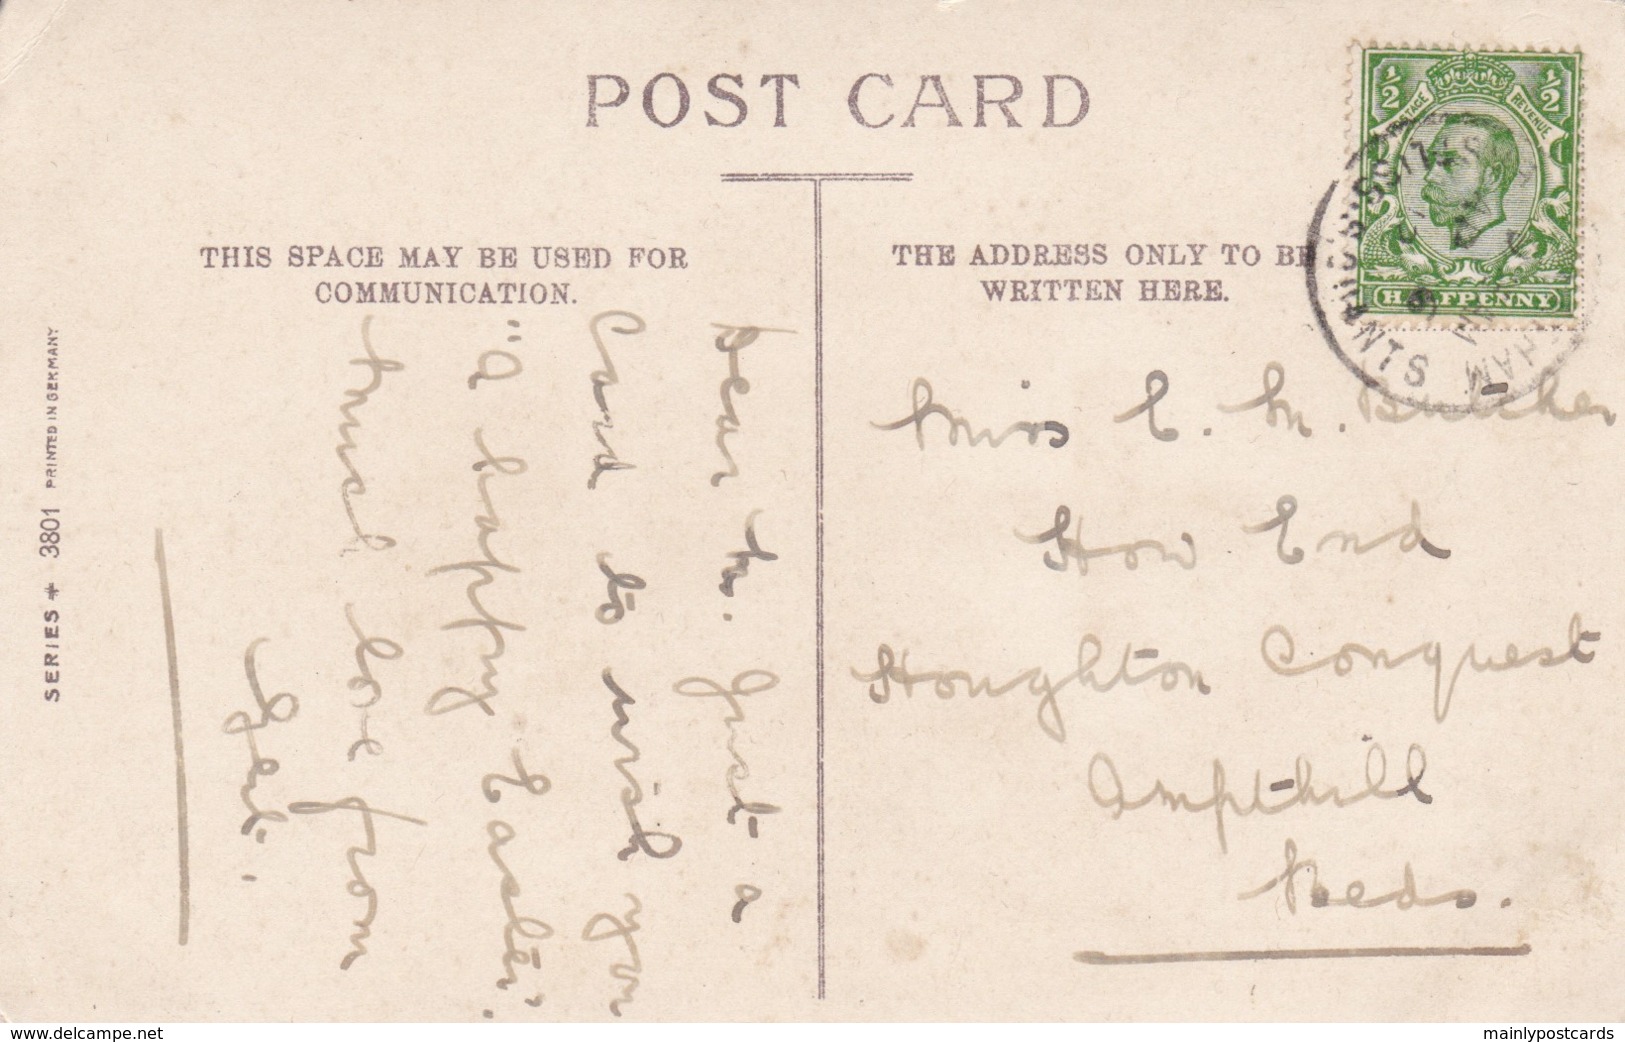 POST CARD
THIS SPACE MAY BE USED FOR
COMMUNICATION.
THE ADDRESS ONLY TO BE
WRITTEN HERE.
½ ½
POSTAGE REVENUE
HALFPENNY
HANTS
SERIES 3801 PRINTED IN GERMANY
Dear M. Just a
Card to wish you
"a happy Easter".
much love from
Miss E. M. Butcher
How End
Houghton Conquest
Ampthill
Beds.
www.delcampe.net
mainlypostcards